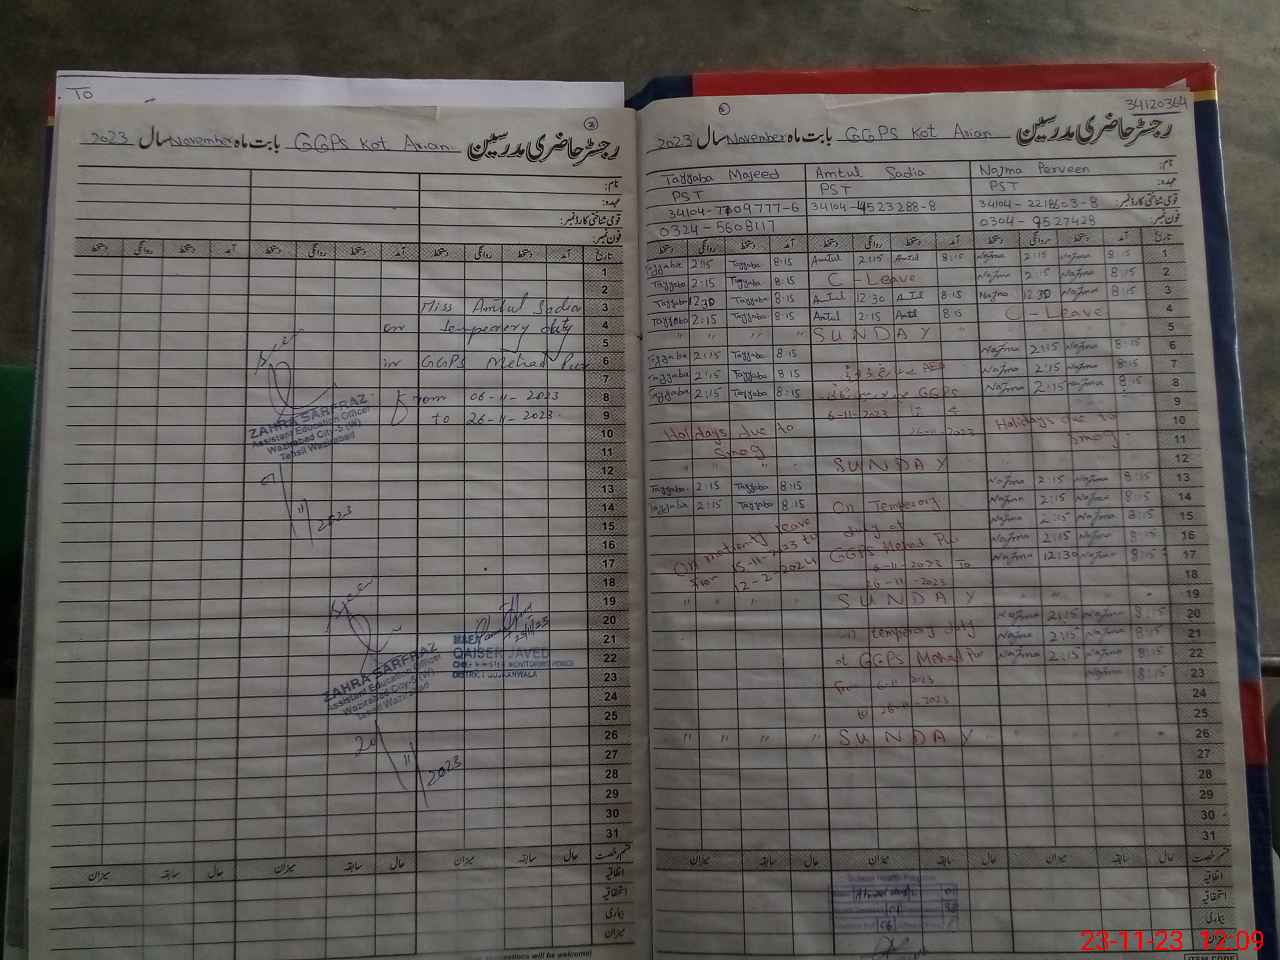 To
رجسٹر حاضری مدرسین GGPS Kot Araian بابت ماہ November سال 2023
نام:
عہدہ:
قومی شناختی کارڈ نمبر:
فون نمبر:
تاریخ آمد دستخط روانگی دستخط آمد دستخط روانگی دستخط آمد دستخط روانگی دستخط
1
2
3 Miss Amtul Sadia
4 on Temperery duty
5
6 in GGPS Mehad Pur
7
8 from 06-11-2023
9 to 26-11-2023
ZAHRA SARFRAZ
Assistant Education Officer
Wazirabad City-5 (W)
Tehsil Wazirabad
11
2023
10
11
12
13
14
15
16
17
18
19
20
21
22
23
24
25
26
27
28
29
30
31
MAEA
QAISER JAVED
DISTRICT GUJRANWALA
ZAHRA SARFRAZ
Assistant Education Officer
Wazirabad City-5 (W)
Tehsil Wazirabad
11
2023
حال سابقہ میزان حال سابقہ میزان حال سابقہ میزان
اتفاقیہ
استحقاقیہ
بیماری
میزان
34120364
رجسٹر حاضری مدرسین GGPS Kot Araian بابت ماہ November سال 2023
نام: Najma Perveen Amtul Sadia Tayyaba Majeed
عہدہ: PST PST PST
قومی شناختی کارڈ نمبر: 34104-2218603-8 34104-4523288-8 34104-7709777-6
فون نمبر: 0304-9527428 0324-5608117
تاریخ آمد دستخط روانگی دستخط آمد دستخط روانگی دستخط آمد دستخط روانگی دستخط
1 8:15 Najma 2:15 Najma 8:15 Amtul 2:15 Amtul 8:15 Tayyaba 2:15 Tayyaba
2 8:15 Najma 2:15 Najma C-Leave 8:15 Tayyaba 2:15 Tayyaba
3 8:15 Najma 12:30 Najma 8:15 Amtul 12:30 Amtul 8:15 Tayyaba 12:30 Tayyaba
4 C-Leave 8:15 Amtul 2:15 Amtul 8:15 Tayyaba 2:15 Tayyaba
5 SUNDAY
6 8:15 Najma 2:15 Najma 8:15 Tayyaba 2:15 Tayyaba
7 8:15 Najma 2:15 Najma 8:15 Tayyaba 2:15 Tayyaba
8 8:15 Najma 2:15 Najma GGPS 8:15 Tayyaba 2:15 Tayyaba
9 6-11-2023
10 Holidays due to 26-11-2023 Holidays due to
11 Smog Smog
12 SUNDAY
13 8:15 Najma 2:15 Najma 8:15 Tayyaba 2:15 Tayyaba
14 8:15 Najma 2:15 Najma On Temperory 8:15 Tayyaba 2:15 Tayyaba
15 8:15 Najma 2:15 Najma duty at
16 8:15 Najma 2:15 Najma GGPS Mehad Pur
17 8:15 Najma 12:30 Najma 6-11-2023 To
18 26-11-2023
19 SUNDAY
20 8:15 Najma 2:15 Najma
21 8:15 Najma 2:15 Najma on temperory duty
22 8:15 Najma 2:15 Najma at GGPS Mehad Pur
23 8:15 Najma From 6-11-2023
24 to 26-11-2023
25
26 SUNDAY
27
28
29
30
31
حال سابقہ میزان حال سابقہ میزان حال سابقہ میزان
اتفاقیہ
استحقاقیہ
بیماری
میزان
23-11-23 12:09
ITEM CODE